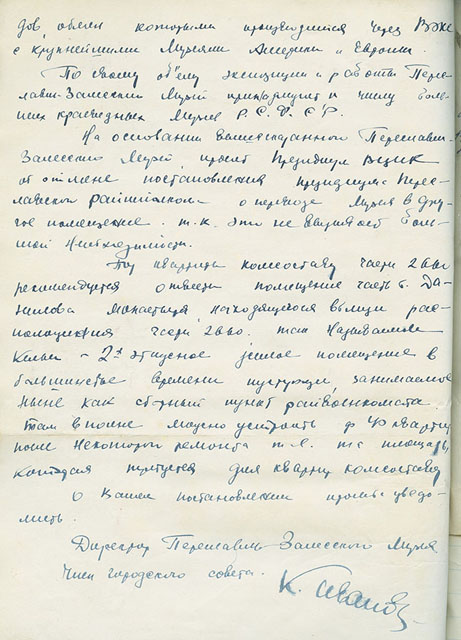 дов, обмен которыми производится через ВОКС
с крупнейшими Музеями Америки и Европы.
По своему об'ему экспозиции и работы Пере-
славль-Залесский Музей принадлежит к числу боль-
ших краеведных Музеев Р.С.Ф.С.Р.
На основании вышесказанного Переславль-
Залесский Музей, просит Президиум ВЦИК
об отмене постановления президиума Перес-
лавского райисполкома о переводе Музея в дру-
гое помещение т.к. это не вызывает боль-
шой необходимости.
Под квартиры комсоставу части 2660
рекомендуется отвести помещение часть б. Да-
нилова монастыря, находящейся вблизи рас-
положения части 2660. так называемые
Кельи - 2х этажное жилое помещение в
большинстве времени пустующее, занимаемое
ныне как сборный пункт райвоенкомата.
Там вполне можно устроить до 40 квартир
после некоторого ремонта т.е. та площадь,
которая требуется для квартир комсостава
О Вашем постановлении просьба уведо-
мить.
Директор Переславль-Залесского Музея
Член городского совета.
К. Иванов